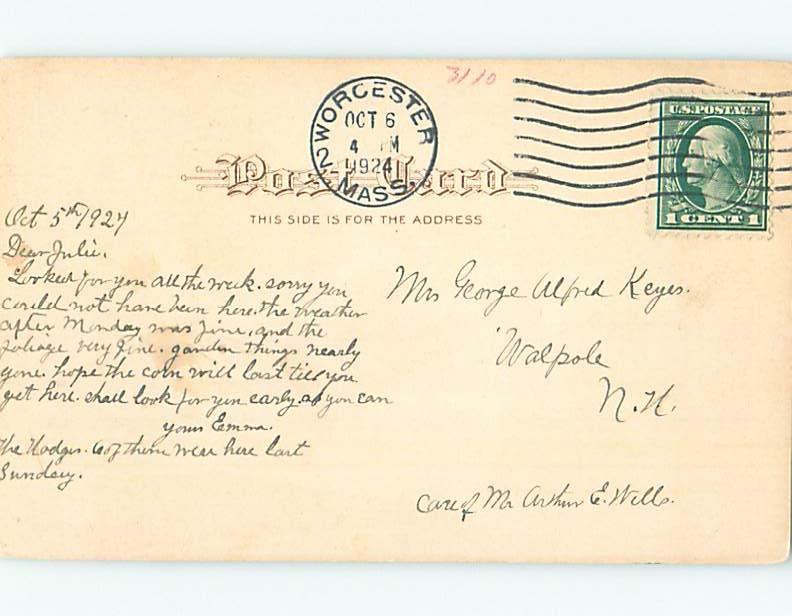 3110
WORCESTER
OCT 6
4 M
1924
MASS.
2
U.S. POSTAGE
1 CENT 1
Post Card
THIS SIDE IS FOR THE ADDRESS
Oct 5th 1924
Dear Julie.
Looked for you all the week. sorry you
could not have been here. the weather
after Monday was fine. and the
foliage very fine. garden things nearly
gone. hope the corn will last till you
get here. shall look for you early as you can
yours Emma.
the Hodges. 6 of them were here last
Sunday.
Mrs George Alfred Keyes.
Walpole
N.H.
Care of Mr Arthur E. Wells.